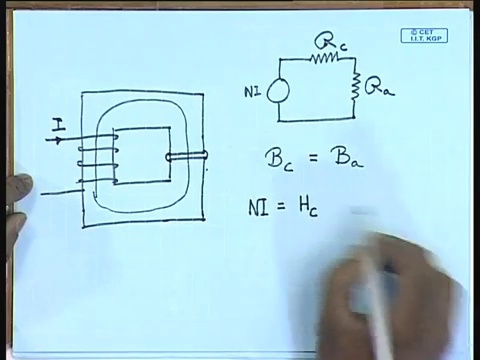 © CET
I.I.T. KGP
R_c
NI
R_a
I
B_c = B_a
NI = H_c